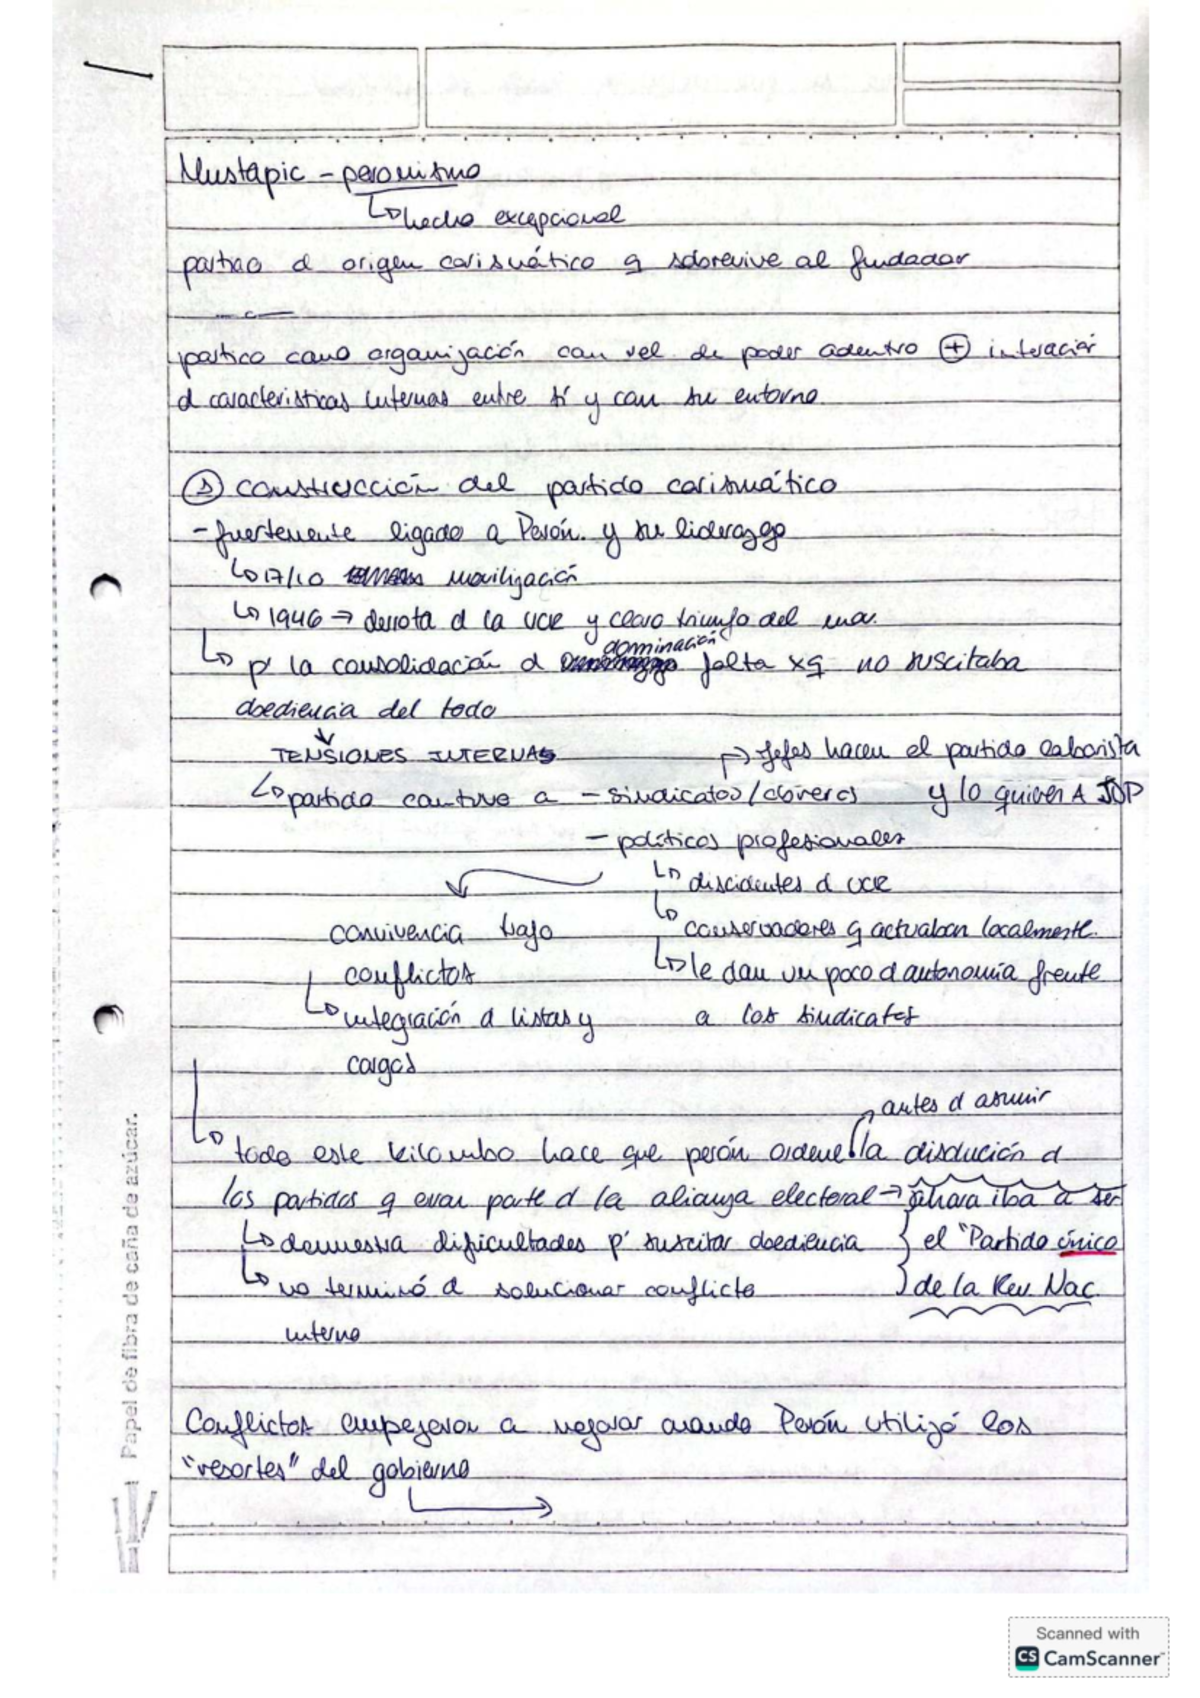 Mustapic - peronismo
↳ hecho excepcional
partido d origen carismático q sobrevive al fundador
partido como organización con rel de poder adentro ⊕ interacción
d características internas entre sí y con su entorno
① construcción del partido carismático
- fuertemente ligado a Perón y su liderazgo
↳ 17/10 movilización
↳ 1946 → derrota d la UCR y claro triunfo del mov.
↳ p' la consolidación d dominación falta xq no suscitaba
obediencia del todo
↓
TENSIONES INTERNAS
↳ partido contuvo a - sindicatos/obreros
↱ jefes hacen el partido laborista
y lo quieren A JDP
- políticos profesionales
↳ discidentes d UCR
↳ conservadores q actuaban localmente
↳ le dan un poco d autonomía frente
a los sindicatos
convivencia bajo
conflictos
↳ integración d listas y
cargos
antes d asumir
↳ todo este kilombo hace que perón ordene la disolución d
los partidos q eran parte d la alianza electoral → ahora iba a ser
↳ demuestra dificultades p' suscitar obediencia } el "Partido único
↳ no terminó d solucionar conflicto } de la Rev Nac.
interno
Conflictos empezaron a mejorar cuando Perón utilizó los
"resortes" del gobierno
Papel de fibra de caña de azúcar.
Scanned with
CS CamScanner